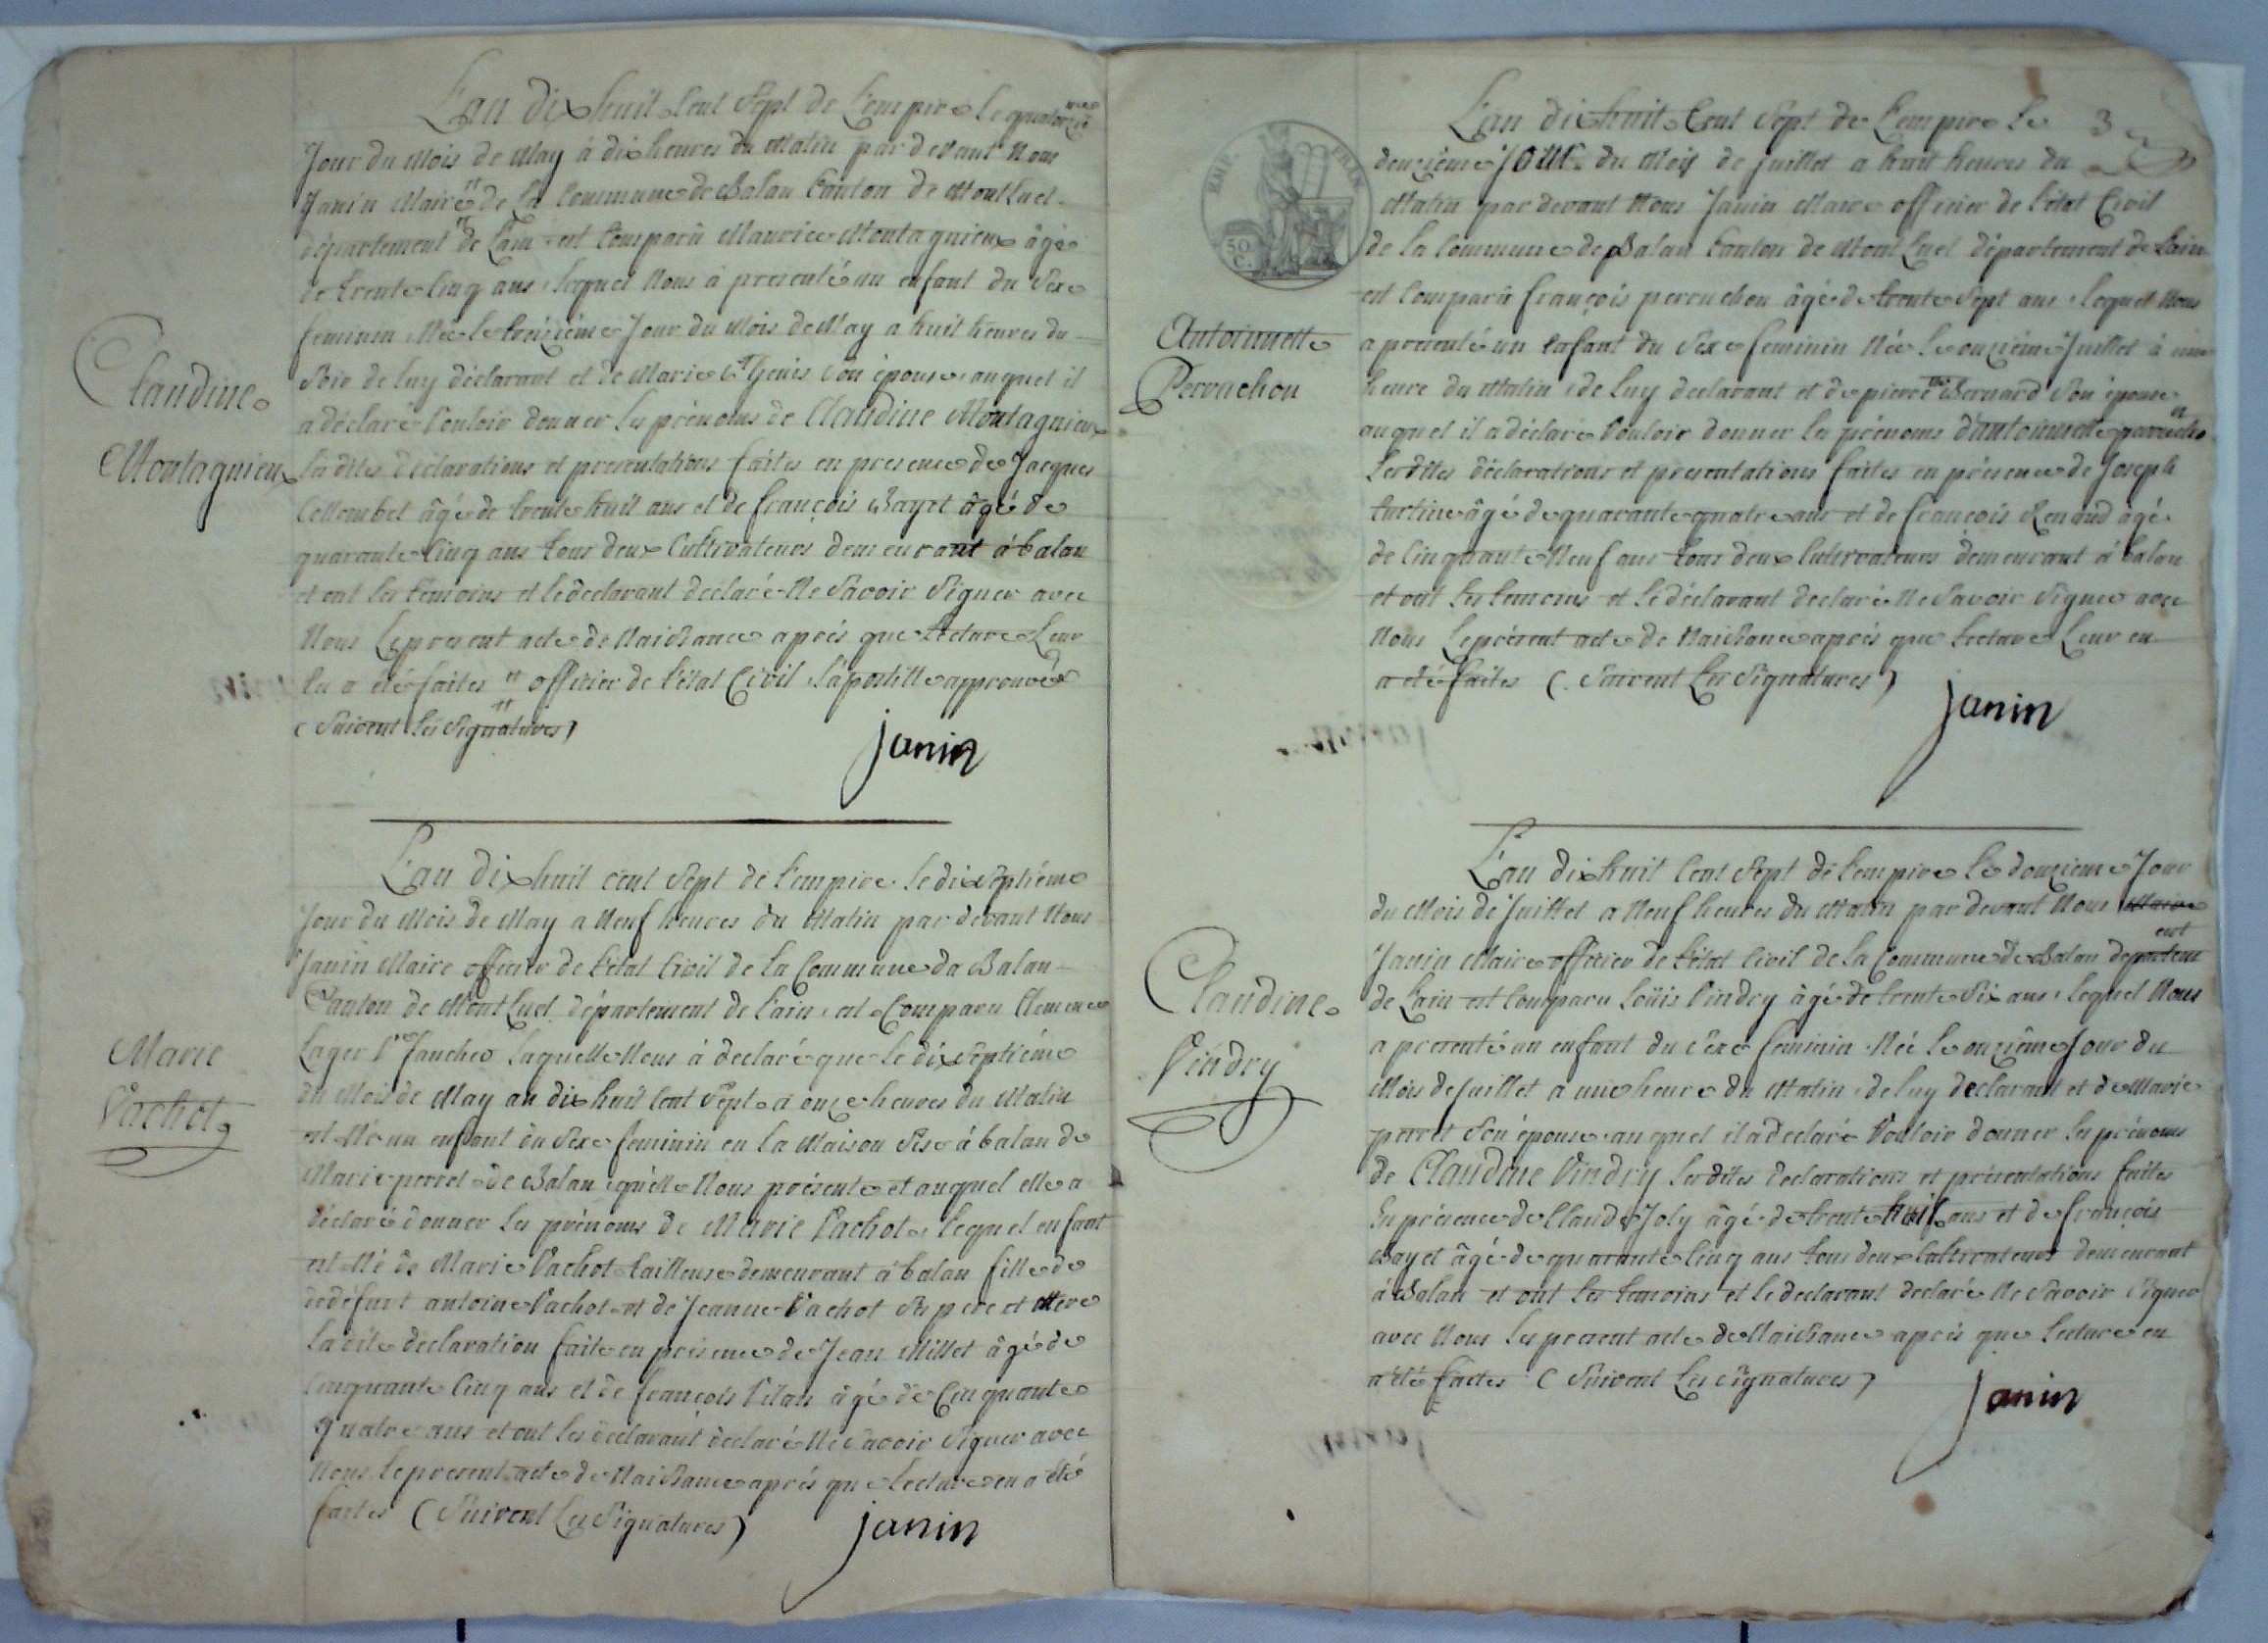 L'an dix huit Cent Sept de L'empire le quatorzie
me
Jour du Mois de May à dix heures du Matin par devant Nous
Janin Maire " de la Commune de Balan Canton de Montluel
département de L'ain est Comparû Maurice Montagnieux âgé
de trente Cinq ans, lequel Nous à presenté un enfant du Sexe
feminin Née le treizième Jour du Mois de May a huit heures du
Soir de luy déclarant et de Marie Genis Son épouse, auquel il
a déclaré Vouloir donner les prénoms de Claudine Montagnieux
Claudine
Montagnieux
les dites déclarations et presentations faites en presence de Jacques
Collombet âgé de trente huit ans et de françois Bayet âgé de
quarante Cinq ans tous deux Cultivateurs demeurant à balan
et ont les temoins et le declarant declaré Ne Savoir Signer avec
Nous le present acte de Naissance après que Lecture Leur
En a été faites " officier de l'état Civil l'apostille approuvée
( Suivent les Signatures )
janin
L'an dix huit cent Sept de L'empire le dix Septième
Jour du Mois de May a Neuf heures du Matin par devant Nous
Janin Maire officier de l'état Civil de la Commune da Balan
Canton de Mont Luel département de l'ain, est Comparu Clemence
Lager Ve Janchée laquelle Nous à declaré que le dix Septième
du Mois de May an dix huit Cent Sept a onze heures du Matin
est Né un enfant du Sexe feminin en la Maison Sise à balan de
Marie perret de Balan, qu'elle Nous présente et auquel elle a
déclaré donner les prénoms de Marie Vachot, lequel enfant
Marie
Vachot
est Né de Marie Vachot tailleuse demeurant à balan fille de
de défunt antoine Vachot et de Jeanne Vachot Ses pere et Mere
la dite declaration faite en présence de Jean Millet âgé de
Cinquante Cinq ans et de françois Pilan âgé de Cinquante
quatre ans et ont les declarant declaré Ne Savoir Signer avec
Nous le present acte de Naissance après que Lecture en a été
faites ( Suivent Les Signatures )
janin
EMP. FRAN.
50 C.
3
L'an dix huit Cent Sept de L'empire Le
douzième JOUR du Mois de Juillet a huit heures du
Matin par devant Nous Janin Maire officier de l'état Civil
de la Commune de Balan Canton de Mont Luel département de Lain
est Comparû françois perruchon âgé de trente Sept ans, lequel Nous
a presenté un Enfant du Sexe feminin Née Le onzième Juillet à une
heure du Matin, de luy declarant et de pierrette Bernard Son épouse
auquel il a déclaré Vouloir donner les prénoms d'antoinette perrucho
n
Antoinette
Perruchon
Les dites déclarations et presentations faites en présence de Joseph
âgé de quarante quatre ans et de françois Renaud âgé
de Cinquante Neuf ans tous deux Cultivateurs demeurant à balan
et ont les temoins et le déclarant declaré Ne Savoir Signe avec
Nous le présent acte de Naissance après que Lecture Leur en
a été faites ( Suivent Les Signatures )
janin
L'an dix huit Cent Sept de L'empire Le douzieme Jour
du Mois de Juillet a Neuf heures du Matin par devant Nous Maire
Janin Maire officier de l'état Civil de la Commune de Balan departem
ent
de L'ain est Comparu Loüis Vindry âgé de trente Six ans, lequel Nous
a presenté un enfant du Sexe feminin Née le onzième Jour du
Mois de Juillet a une heure du Matin, de luy declarant et de Marie
perret Son épouse, auquel il a declaré Vouloir donner les prénoms
de Claudine Vindry les dites declarations et présentations faites
Claudine
Vindry
En présence de Claude Joly âgé de trente huit ans et de françois
Bayet âgé de quarante Cinq ans tous deux Cultivateurs demeurant
à Balan et ont les temoins et le declarant declaré Ne Savoir Signer
avec Nous les present acte de Naissance après que lecture en
a été faites ( Suivent Les Signatures )
janin